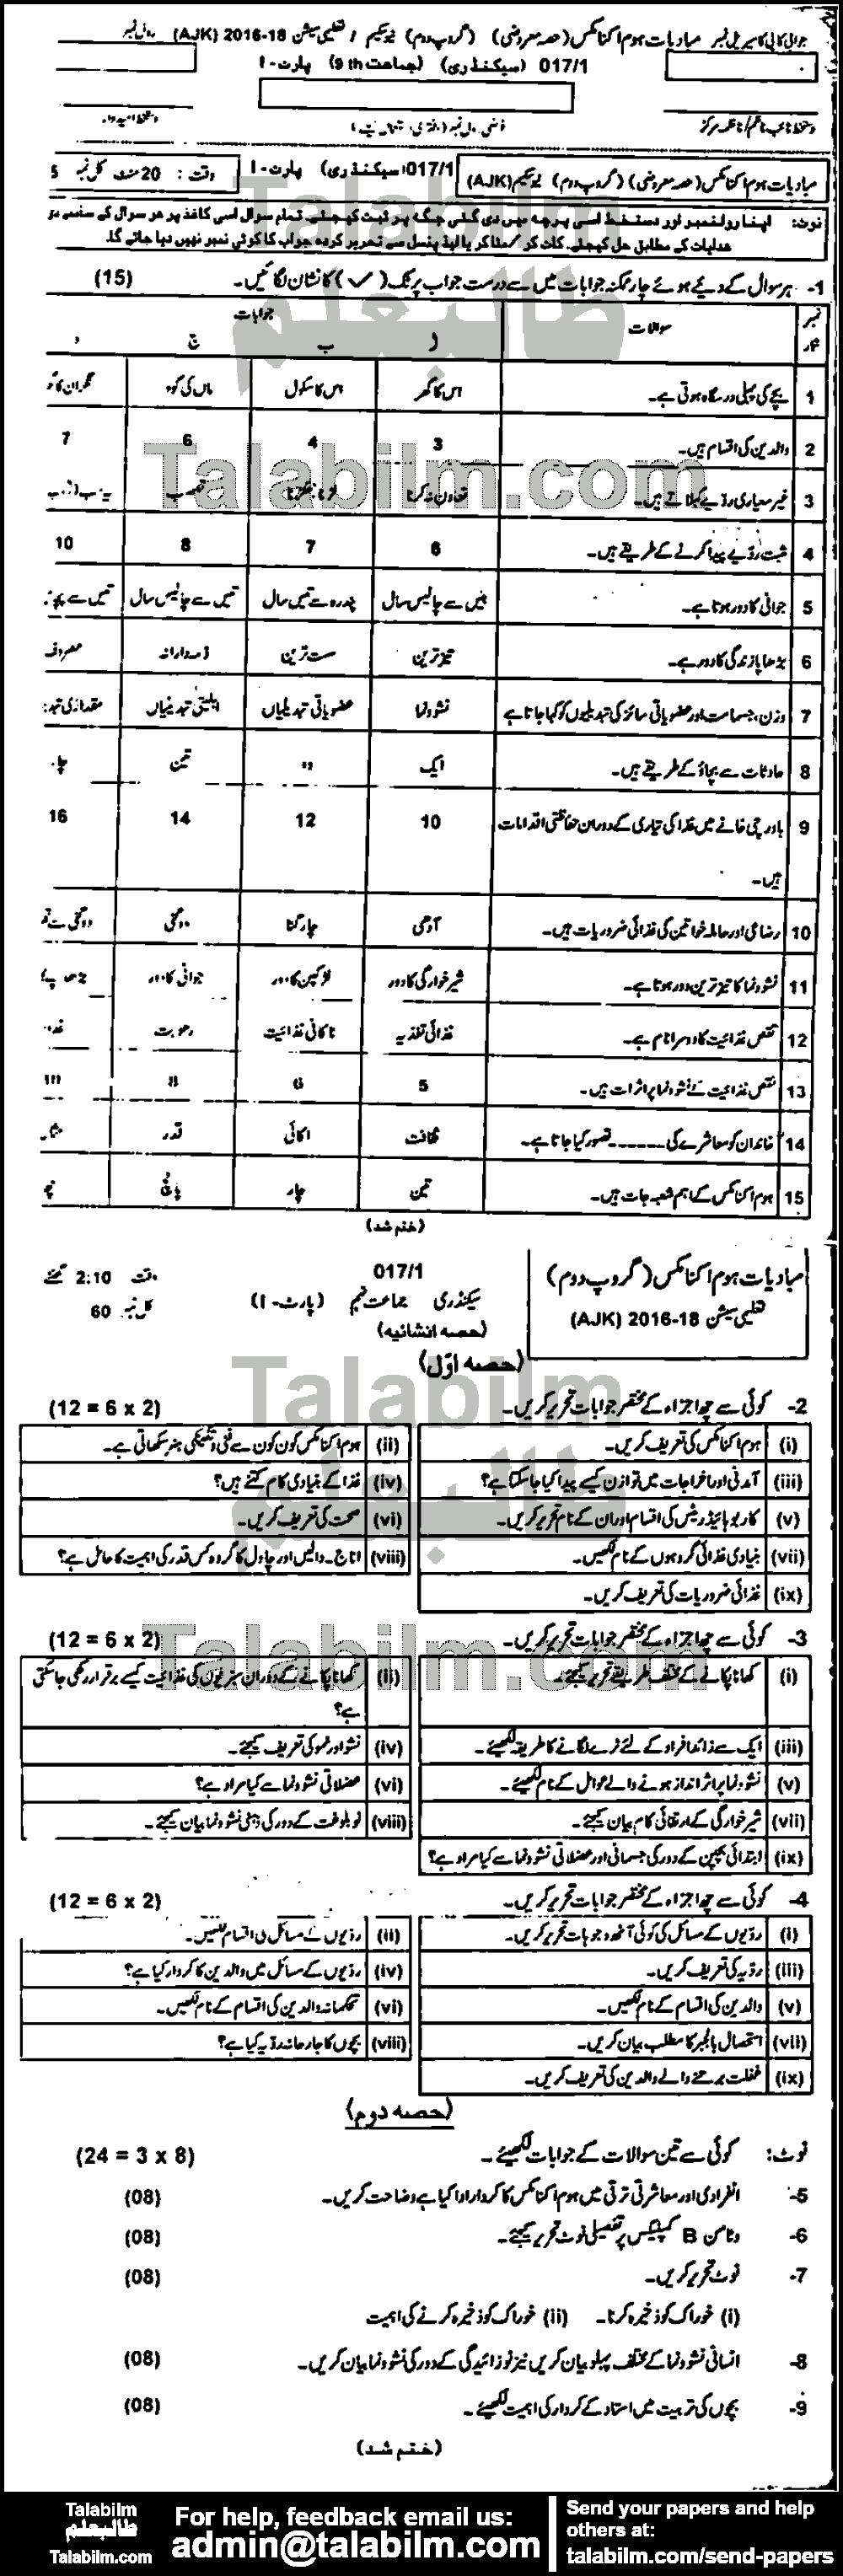 جوابی کاپی کا سیریل نمبر مبادیات ہوم اکنامکس (حصہ معروضی) (گروپ دوم) نیوسکیم / تعلیمی سیشن 18-2016 (AJK) رول نمبر
017/1 (سیکنڈری) (جماعت 9th) پارٹ - I
دستخط نائب ناظم/ناظمہ مرکز
دستخط امیدوار
مبادیات ہوم اکنامکس (حصہ معروضی) (گروپ دوم) نیوسکیم (AJK)
017/1 (سیکنڈری) پارٹ - I
وقت : 20 منٹ کل نمبر 5
نوٹ: اپنا رولنمبر اور دستخط اسی پرچہ میں دی گئی جگہ پر ثبت کیجئے۔ تمام سوال اسی کاغذ پر ہر سوال کے سامنے
ھدایات کے مطابق حل کیجئے۔ کاٹ کر/مٹا کر یا لیڈ پنسل سے تحریر کردہ جواب کا کوئی نمبر نہیں دیا جائے گا۔
1- ہر سوال کے دیئے ہوئے چار ممکنہ جوابات میں سے درست جواب پر ٹک (✓) کا نشان لگائیں۔ (15)
نمبر شمار سوالات جوابات
ا ب ج د
1 بچے کی پہلی درسگاہ ہوتی ہے۔ اس کا گھر اس کا سکول ماں کی گود
2 والدین کی اقسام ہیں۔ 3 4 6 7
3 غیر معیاری رویے کہلاتے ہیں۔ تعاون نہ کرنا لڑنا جھگڑنا تعصب
4 مثبت رویے پیدا کرنے کے طریقے ہیں۔ 6 7 8 10
5 جوانی کا دور ہوتا ہے۔ بیس سے چالیس سال پندرہ سے تیس سال تیس سے چالیس سال
6 بڑھاپا زندگی کا دور ہے۔ تیز ترین سست ترین ذمہ دارانہ مصروف
7 وزن، جسامت اور عضویاتی سائز کی تبدیلیوں کو کہا جاتا ہے نشوونما عضویاتی تبدیلیاں اہلیتی تبدیلیاں مقداری
8 حادثات سے بچاؤ کے طریقے ہیں۔ ایک دو تین چار
9 باورچی خانے میں غذا کی تیاری کے دوران حفاظتی اقدامات ہیں۔ 10 12 14 16
10 رضاعی اور حاملہ خواتین کی غذائی ضروریات ہیں۔ آدھی چار گنا دوگنی
11 نشوونما کا تیز ترین دور ہوتا ہے۔ شیرخوارگی کا دور لڑکپن کا دور جوانی کا دور
12 نقص غذائیت کا دوسرا نام ہے۔ غذائی تغذیہ ناکافی غذائیت رطوبت
13 نقص غذائیت کے نشوونما پر اثرات ہیں۔ 5 6 8 10
14 خاندان کو معاشرے کی ------ تصور کیا جاتا ہے۔ ثقافت اکائی قدر
15 ہوم اکنامکس کے اہم شعبہ جات ہیں۔ تین چار پانچ
(ختم شد)
مبادیات ہوم اکنامکس (گروپ دوم)
تعلیمی سیشن 18-2016 (AJK)
017/1
سیکنڈری جماعت نہم (پارٹ - I)
(حصہ انشائیہ)
وقت 2:10 گھنٹے
کل نمبر 60
(حصہ اوّل)
2- کوئی سے چھ اجزاء کے مختصر جوابات تحریر کریں۔ (12 = 6 x 2)
(i) ہوم اکنامکس کی تعریف کریں۔ (ii) ہوم اکنامکس کون کون سے فنی و تکنیکی ہنر سکھاتی ہے۔
(iii) آمدنی اور اخراجات میں توازن کیسے پیدا کیا جا سکتا ہے؟ (iv) غذا کے بنیادی کام کتنے ہیں؟
(v) کاربوہائیڈریٹس کی اقسام اور ان کے نام تحریر کریں۔ (vi) صحت کی تعریف کریں۔
(vii) بنیادی غذائی گروہوں کے نام لکھیں۔ (viii) اناج۔ دالیں اور چاول کا گروہ کس قدر کی اہمیت کا حامل ہے؟
(ix) غذائی ضروریات کی تعریف کریں۔
3- کوئی سے چھ اجزاء کے مختصر جوابات تحریر کریں۔ (12 = 6 x 2)
(i) کھانا پکانے کے مختلف طریقے تحریر کیجئے۔ (ii) کھانا پکانے کے دوران سبزیوں کی غذائیت کیسے برقرار رکھی جا سکتی ہے؟
(iii) ایک سے زائد افراد کے لئے ٹرے لگانے کا طریقہ لکھیئے۔ (iv) نشو اور نمو کی تعریف کیجئے۔
(v) نشوونما پر اثر انداز ہونے والے عوامل کے نام لکھیئے۔ (vi) عضلاتی نشوونما سے کیا مراد ہے؟
(vii) شیرخوارگی کے ارتقائی کام بیان کیجئے۔ (viii) نو بلوغت کے دور کی ذہنی نشوونما بیان کیجئے۔
(ix) ابتدائی بچپن کے دور کی جسمانی اور عضلاتی نشوونما سے کیا مراد ہے؟
4- کوئی سے چھ اجزاء کے مختصر جوابات تحریر کریں۔ (12 = 6 x 2)
(i) رویوں کے مسائل کی کوئی آٹھ وجوہات تحریر کریں۔ (ii) رویوں کے مسائل کی اقسام لکھیں۔
(iii) رویہ کی تعریف کریں۔ (iv) رویوں کے مسائل میں والدین کا کردار کیا ہے؟
(v) والدین کی اقسام کے نام لکھیں۔ (vi) تحکمانہ والدین کی اقسام کے نام لکھیں۔
(vii) استحصال بالجبر کا مطلب بیان کریں۔ (viii) بچوں کا جارحانہ رویہ کیا ہے؟
(ix) غفلت برتنے والے والدین کی تعریف کریں۔
(حصہ دوم)
نوٹ: کوئی سے تین سوالات کے جوابات لکھیئے۔ (24 = 3 x 8)
5- انفرادی اور معاشرتی ترقی میں ہوم اکنامکس کا کردار ادا کیا ہے وضاحت کریں۔ (08)
6- وٹامن B کمپلیکس پر تفصیلی نوٹ تحریر کیجئے۔ (08)
7- نوٹ تحریر کریں۔ (08)
(i) خوراک کو ذخیرہ کرنا۔ (ii) خوراک کو ذخیرہ کرنے کی اہمیت
8- انسانی نشوونما کے مختلف پہلو بیان کریں نیز نوزائیدگی کے دور کی نشوونما بیان کریں۔ (08)
9- بچوں کی تربیت میں استاد کے کردار کی اہمیت لکھیئے۔ (08)
(ختم شد)
Talabilm
طالبعلم
Talabilm.com
Talabilm
طالبعلم
Talabilm.com
Talabilm
طالبعلم
Talabilm.com
For help, feedback email us:
admin@talabilm.com
Send your papers and help
others at:
talabilm.com/send-papers